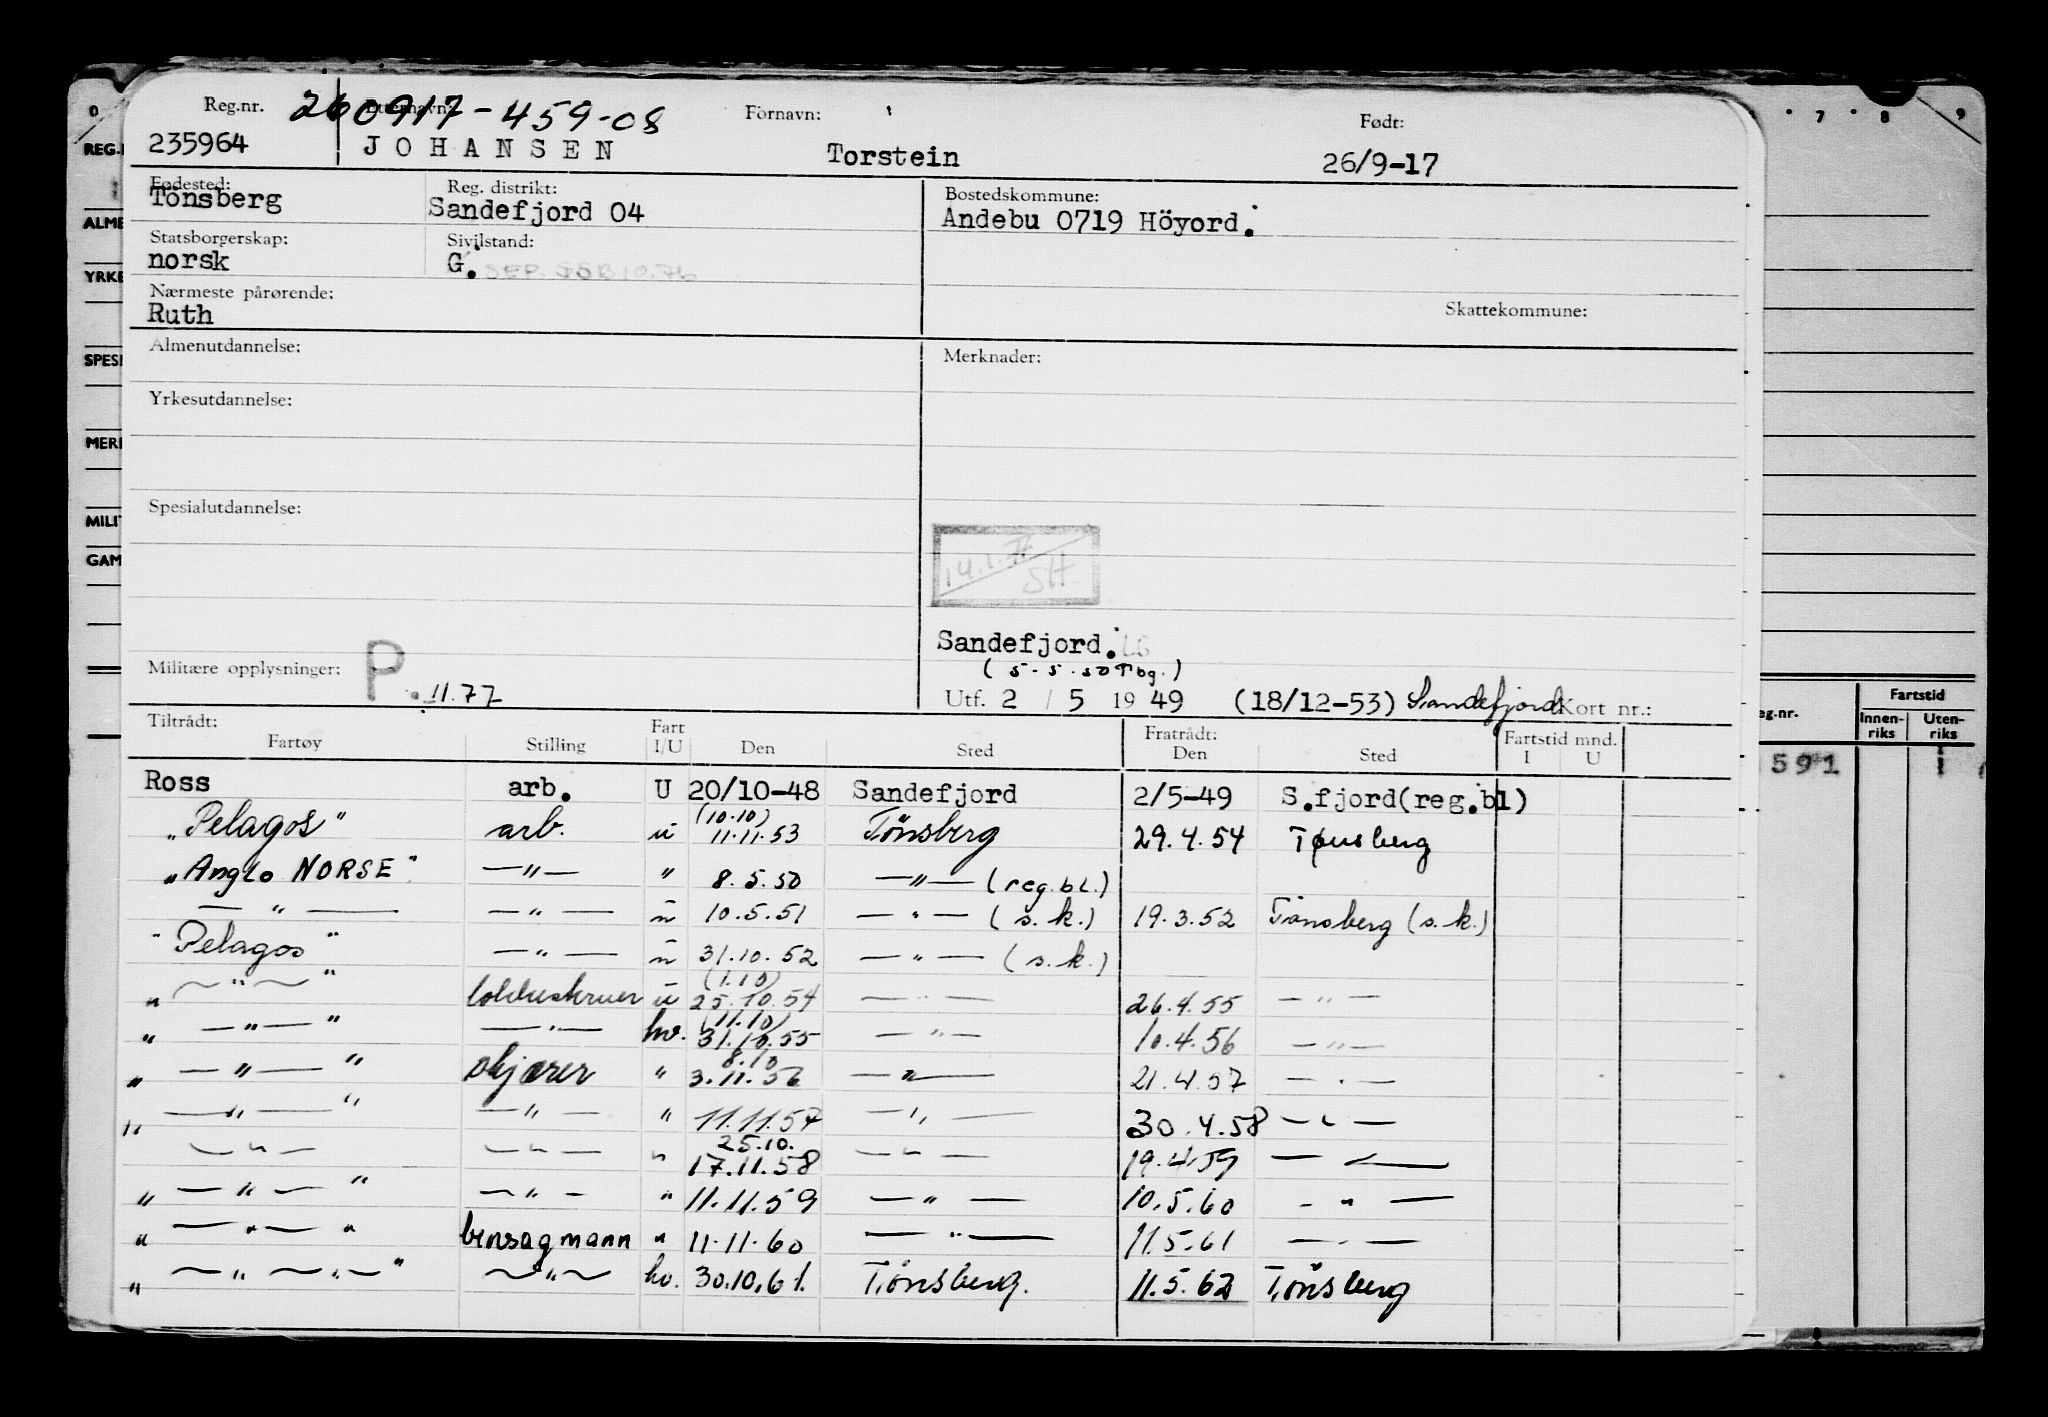 Reg.nr. 260917-459-08 Etternavn: Fornavn: Født:
235964 JOHANSEN Torstein 26/9-17
Fødested: Reg. distrikt: Bostedskommune:
Tönsberg Sandefjord 04 Andebu 0719 Höyord.
Statsborgerskap: Sivilstand:
norsk G.
Nærmeste pårørende: Skattekommune:
Ruth
Almenutdannelse: Merknader:
Yrkesutdannelse:
Spesialutdannelse:
14.1.77 SH
Sandefjord.
(5-5.50 Tbg.)
Militære opplysninger: P. 11.77 Utf. 2 / 5 1949 (18/12-53) Sandefjord Kort nr.:
Tiltrådt: Fart Fratrådt: Fartstid mnd.
Fartøy Stilling I/U Den Sted Den Sted I U
Ross arb. U 20/10-48 Sandefjord 2/5-49 S.fjord(reg.bl)
"Pelagos" arb. u (10.10) 11.11.53 Tönsberg 29.4.54 Tønsberg
"Anglo NORSE" —"— " 8.5.50 —"— (reg.bl.)
—"— —"— u 10.5.51 —"— (s.k.) 19.3.52 Tönsberg (s.k.)
"Pelagos" —"— u 31.10.52 —"— (s.k.)
" —"— " u (1.10) 25.10.54 —"— 26.4.55 —"—
" —"— " —"— hv. (11.10) 31.10.55 —"— 10.4.56 —"—
" —"— " skjærer " 8.10 3.11.56 —"— 21.4.57 —"—
" —"— " —"— " 11.11.57 —"— 30.4.58 —"—
—"— —"— " 25.10. 17.11.58 —"— 19.4.59 —"—
" —"— " —"— " 11.11.59 —"— 10.5.60 —"—
" —"— " bensagmann " 11.11.60 —"— 11.5.61 —"—
" —"—"— " —"— hv. 30.10.61. Tönsberg. 11.5.62 Tönsberg
0 7 8 9
REG.
ALME
YRKE
SPESI
MERK
MILIT
GAM
Fartstid
eg.nr. Innen-riks Uten-riks
591 1